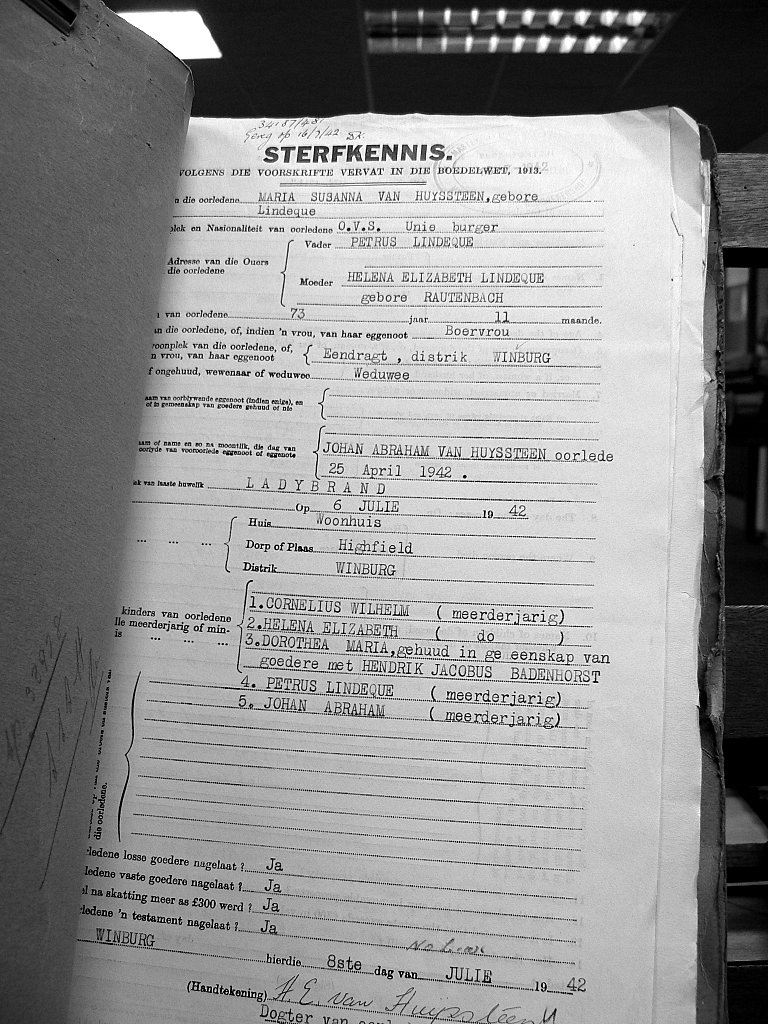 Gereg op 16/7/42
STERFKENNIS.
VOLGENS DIE VOORSKRIFTE VERVAT IN DIE BOEDELWET, 1913.
n die oorledene MARIA SUSANNA VAN HUYSSTEEN, gebore
Lindeque
plek en Nasionaliteit van oorledene O.V.S. Unie burger
Vader PETRUS LINDEQUE
Adresse van die Ouers
die oorledene
Moeder HELENA ELIZABETH LINDEQUE
gebore RAUTENBACH
van oorledene 73 jaar 11 maande.
an die oorledene, of, indien 'n vrou, van haar eggenoot Boervrou
woonplek van die oorledene, of,
n vrou, van haar eggenoot Eendragt , distrik WINBURG
f ongehuud, wewenaar of weduwee Weduwee
aam van oorblywende eggenoot (indien enige), en
of in gemeenskap van goedere gehuud of nie
aam of name en so na moontlik, die dag van
oorlyde van vooroorlede eggenoot of eggenote
JOHAN ABRAHAM VAN HUYSSTEEN oorlede
25 April 1942 .
ek van laaste huwelik LADYBRAND
Op 6 JULIE 19 42
Huis Woonhuis
Dorp of Plaas Highfield
Distrik WINBURG
kinders van oorledene
lle meerderjarig of min-
is
1.CORNELIUS WILHELM ( meerderjarig)
2.HELENA ELIZABETH ( do )
3.DOROTHEA MARIA,gehuud in ge eenskap van
goedere met HENDRIK JACOBUS BADENHORST
4. PETRUS LINDEQUE ( meerderjarig)
5. JOHAN ABRAHAM ( meerderjarig)
die oorledene.
rledene losse goedere nagelaat ? Ja
ledene vaste goedere nagelaat ? Ja
el na skatting meer as £300 werd ? Ja
ledene 'n testament nagelaat ? Ja
WINBURG hierdie 8ste dag van JULIE 19 42
(Handtekening) H. E. van Huyssteen
Dogter van